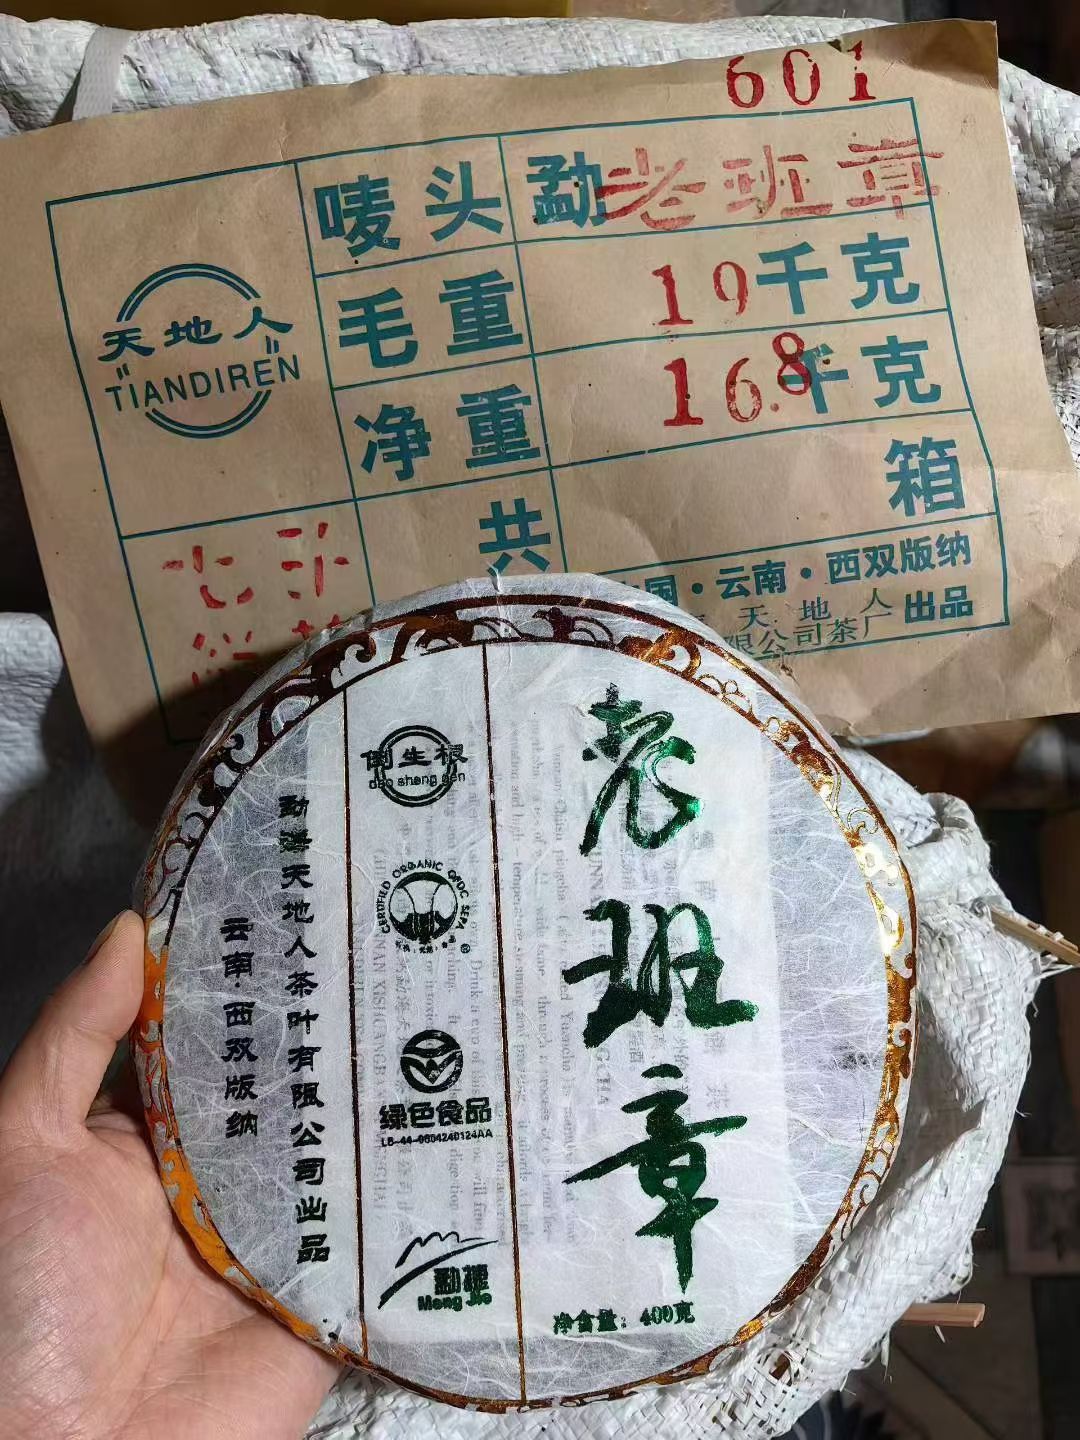 601
唛头 勐老班章
毛重 19千克
净重 16.8千克
共 箱
天地人
"TIANDIREN"
七子
国·云南·西双版纳
天地人
限公司茶厂 出品
老班章
净含量：400克
倒生根
dao sheng gen
CERTIFIED ORGANIC OFDC SEPA
®
绿色食品
LB-44-0604240124AA
Meng Jie
勐海天地人茶叶有限公司出品
云南·西双版纳